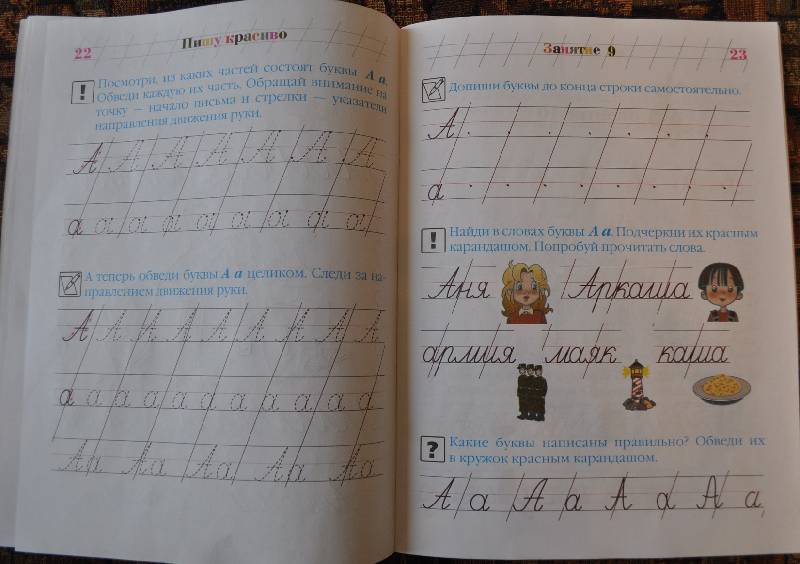 22 Пишу красиво
Посмотри, из каких частей состоят буквы А а.
Обведи каждую их часть. Обращай внимание на
точку — начало письма и стрелки — указатели
направления движения руки.
А А А А А А А
а а а а а а а а
А теперь обведи буквы А а целиком. Следи за на-
правлением движения руки.
А А А А А А А А А
а а а а а а а а а а а
Аа Аа Аа Аа Аа
Занятие 9 23
Допиши буквы до конца строки самостоятельно.
А
а
Найди в словах буквы А а. Подчеркни их красным
карандашом. Попробуй прочитать слова.
Аня Аркаша
армия маяк каша
Какие буквы написаны правильно? Обведи их
в кружок красным карандашом.
А а А а А а А а